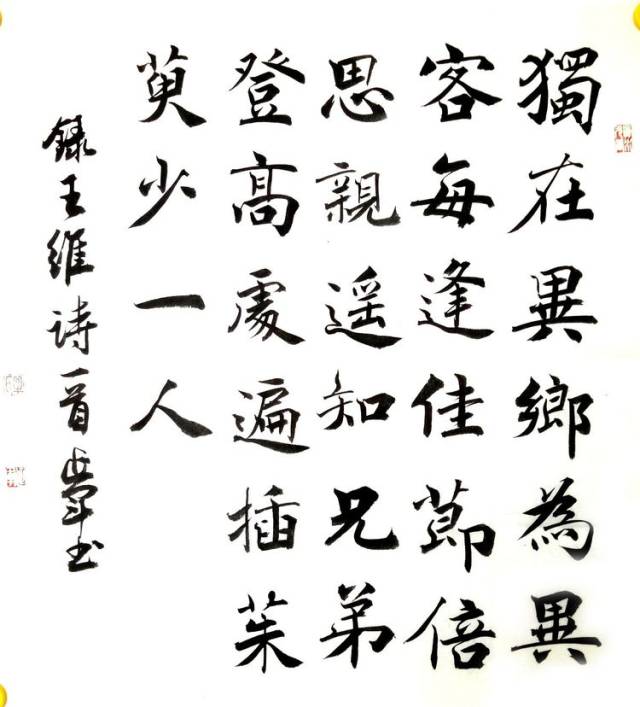 獨在異鄉為異
客每逢佳節倍
思親遥知兄弟
登高處遍插茱
萸少一人
録王維诗一首書